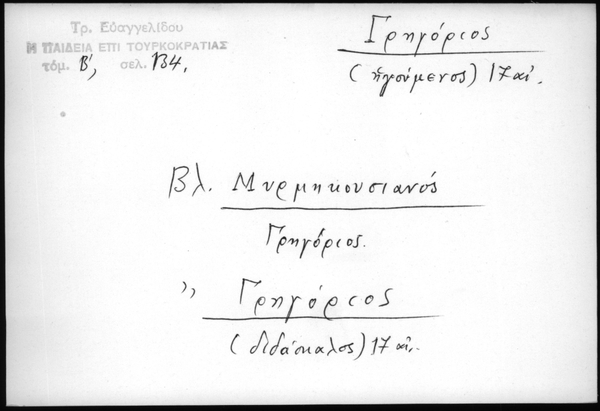 Τρ. Εὐαγγελίδου
Η ΠΑΙΔΕΙΑ ΕΠΙ ΤΟΥΡΚΟΚΡΑΤΙΑΣ
τόμ. Β', σελ. 134,
Γρηγόριος
(ἡγούμενος) 17 αἰ.
Βλ. Μυρμηκουσιανός
Γρηγόριος.
,, Γρηγόριος
(διδάσκαλος) 17 αἰ.